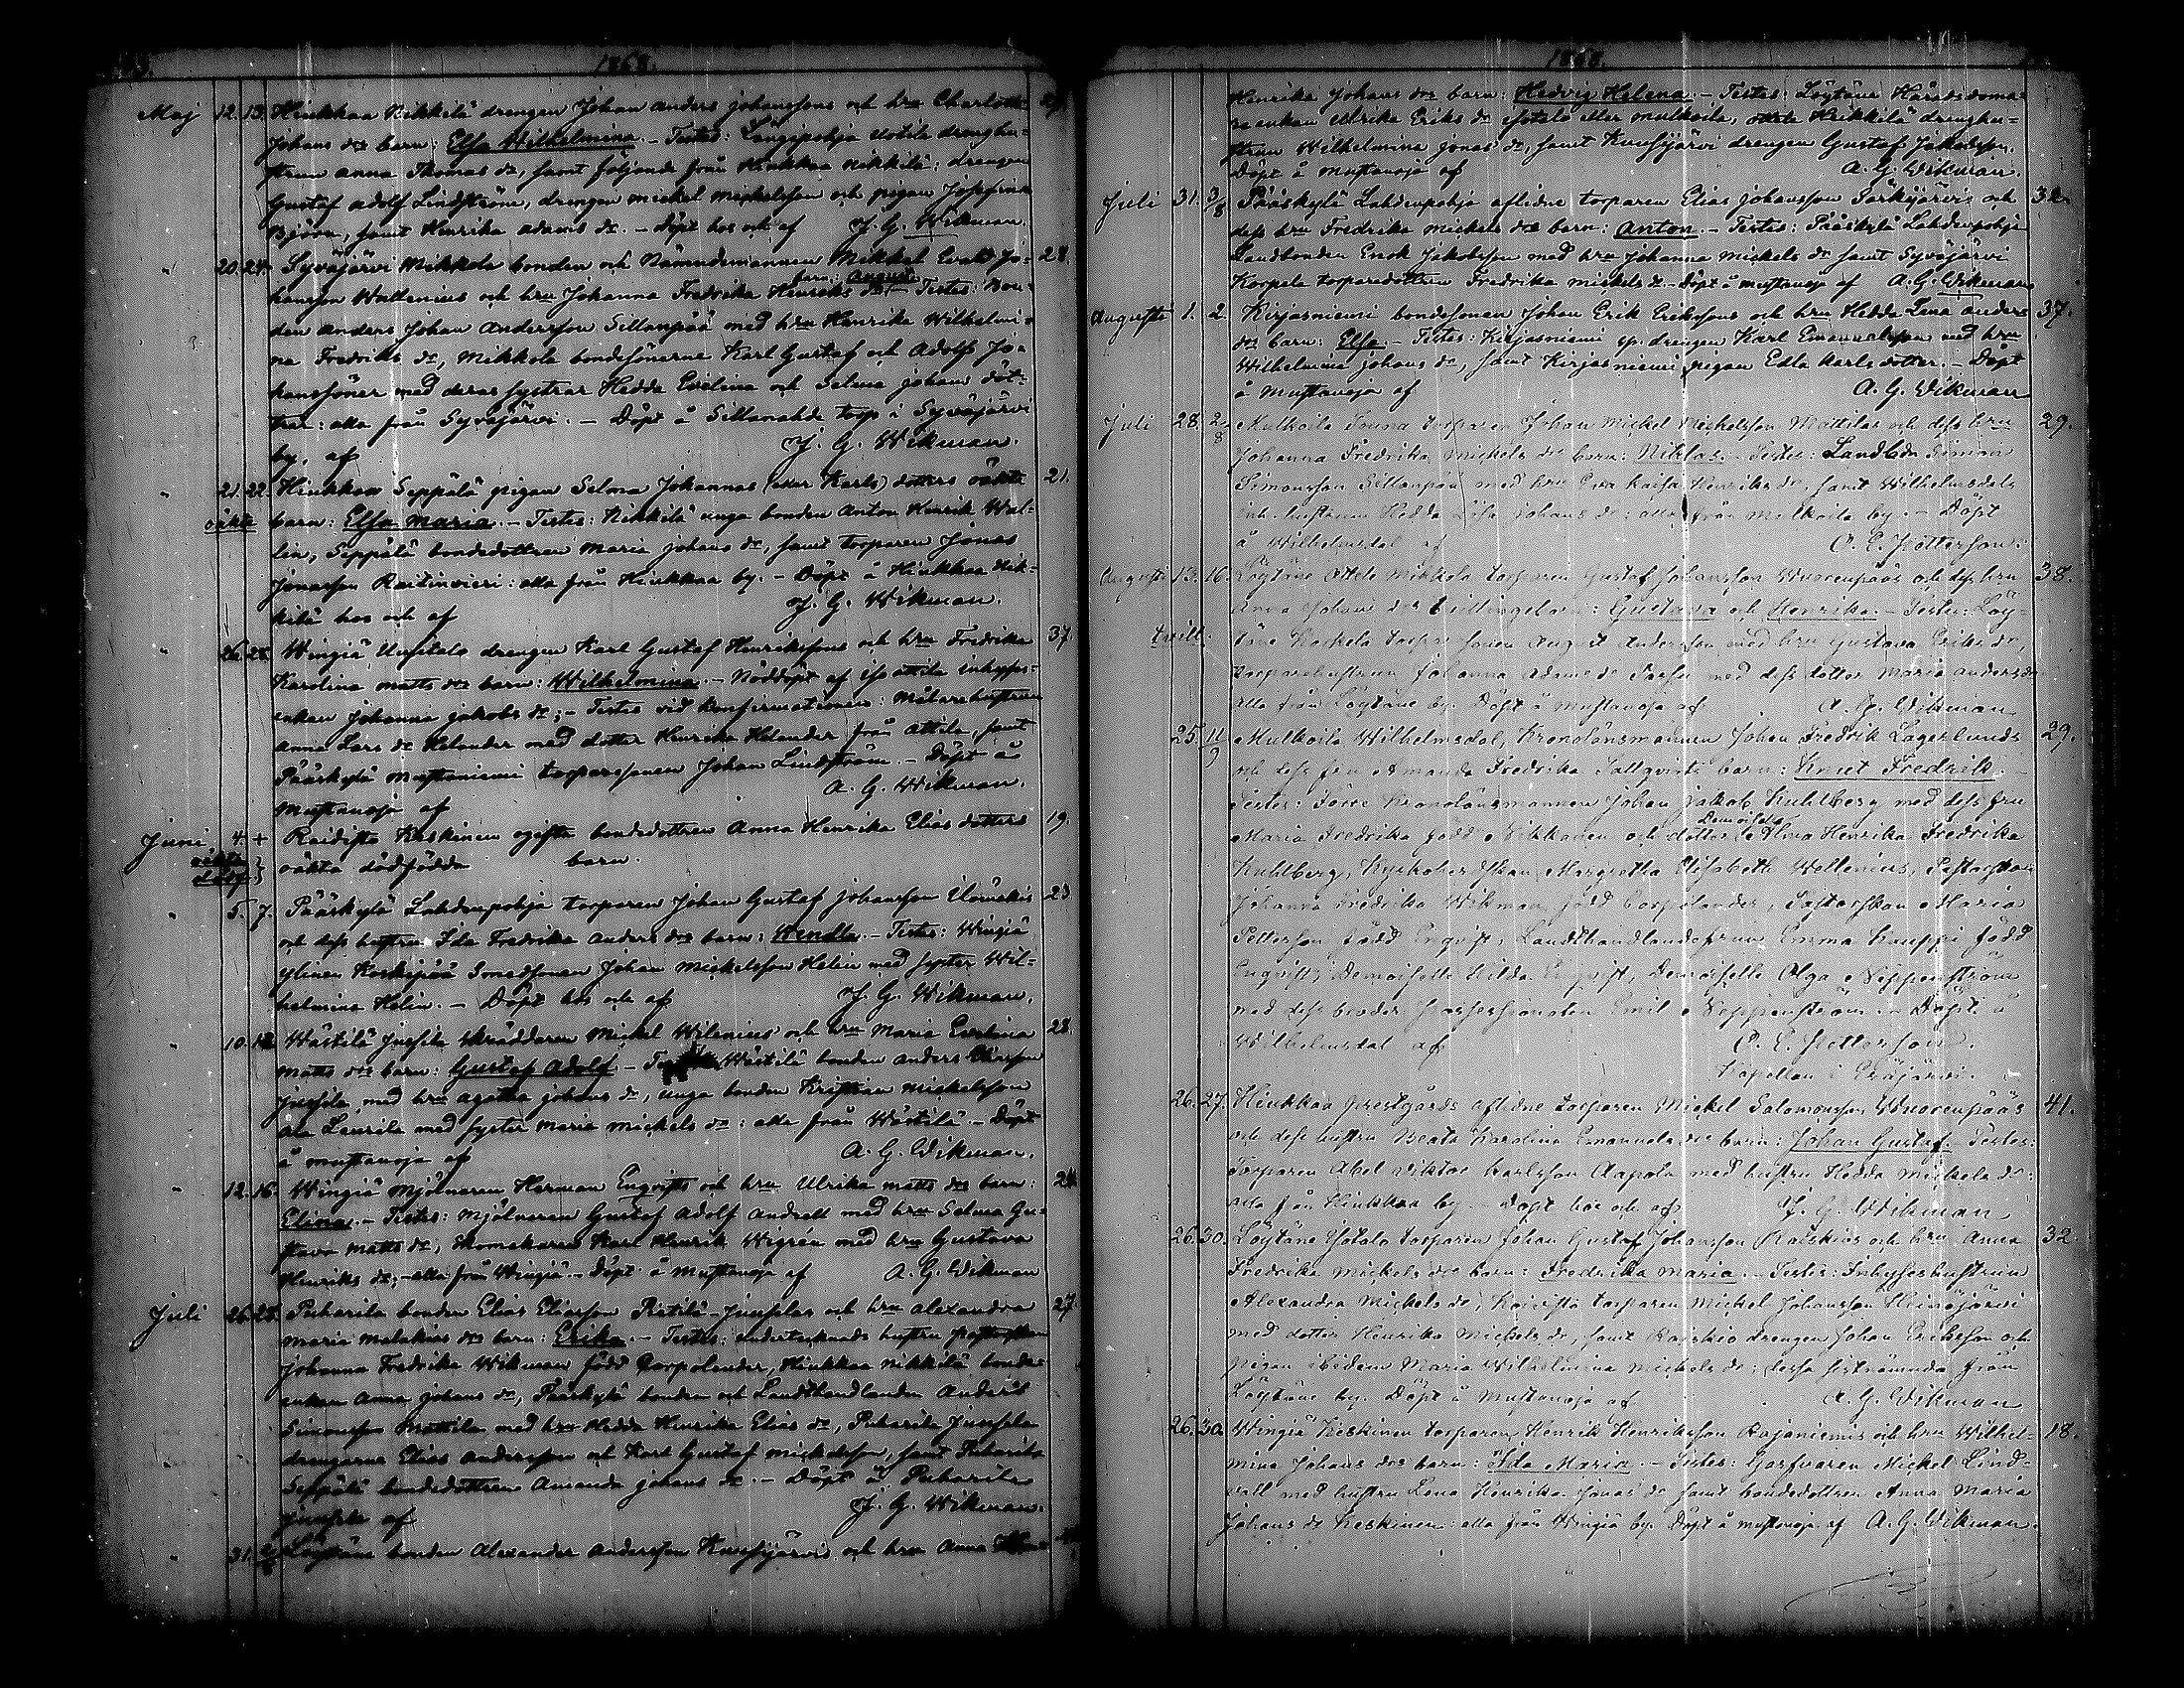 1868.
Maj 12. 13. Hinkkaa Nikkilä drengen Johan Anders Johanssons och hru Charlotta
Johans drs barn: Elsa Wilhelmina. – Testes: drenghu-
strun Anna Thomas dr, samt följande från Hinkkaa Nikkilä: drengen
Gustaf Adolf Lindström, drengen Mickel Mickelsson och pigan Josefina
Björn, samt Henrika Adams dr. – Döpt hos och af J. G. Wikman.
" 20. 24. Syväjärvi Mikkola bonden och Nämndemannen Mikkel Evald Jo- 28.
barn: August
hansson Wallenius och hru Johanna Fredrika Henriks drs – Testes: Bon-
den Anders Johan Andersson Sillanpää med hru Henrika Wilhelmi-
na Fredriks dr, Mikkola bondesönerne Karl Gustaf och Adolf Jo-
hanssöner med deras systrar Hedda Evelina och Selma Johans döt-
trar: alla från Syväjärvi. – Döpt å torp i Syväjärvi
by, af J. G. Wikman.
" 21. 22. Hinkkaa Seppälä pigan Selma Johannas (eller Karls) dotters oäkta 21.
oäkta barn: Elsa Maria. – Testes: Nikkilä unga bonden Anton Henrik Wal-
lin, Seppälä bondedottren Maria Johans dr, samt torparen Jonas
Jonasson Raitinvieri: alla från Hinkkaa by. – Döpt å Hinkkaa Nik-
kilä hos och af J. G. Wikman.
" 26. 28. Wingiä Uusitalo drengen Karl Gustaf Henrikssons och hru Fredrika 37.
Karolina Matts drs barn: Wilhelmina. – Nöddöpt af Iso Attila inhyses-
enkan Johanna Jakobs dr; – Testes vid Konfirmationen: Målarehustrun
Anna Lars dr Helander med dotter Henrika Helander från Attila, samt
Pääskylä Mustaniemi torparesonen Johan Lindström. – Döpt å
Mustanoja af A. G. Wikman.
Juni 4. + Raidisto Keskinen ogifta bondedottren Anna Henrika Elias dotters 19.
oäkta
oäkta dödfödda barn.
" 5. 7. Pääskylä Lahdenpohja torparen Johan Gustaf Johansson 23.
och dess hustru Ida Fredrika Anders drs barn: Wendla. – Testes: Wingiä
Ylinen Koskipää Smedsonen Johan Mickelsson Helin med syster Wil-
helmina Helin. – Döpt hos och af J. G. Wikman.
" 10. 12. Wästilä Jussila skräddaren Mickel Wilenius' och hru Maria Evelina 28.
Matts drs barn: Gustaf Adolf. – Wästilä bonden Anders
Jussila, med hru Agatha Johans dr, unga bonden Kristian Mickelsson
Ala Laurila med syster Maria Mickels dr: alla från Wästilä – Döpt
å Mustanoja af A. G. Wikman.
" 12. 16. Wingiä Mjölnaren Herman Engvists och hru Ulrika Matts drs barn: 24.
Elina. – Testes: Mjölnaren Gustaf Adolf Andsell med hru Selma Gu-
stava Matts dr, Skomakaren Karl Henrik Wigren med hru Gustava
Henriks dr; – alla från Wingiä. – Döpt å Mustanoja af A. G. Wikman
Juli 26. 28. Puharila bonden Elias Eliasson Rietilä-Junnolas och hru Alexandra 27.
Maria Malakias drs barn: Erika. – Testes: undertecknads hustru Pastorskan
Johanna Fredrika Wikman född Carpelander, Hinkkaa Nikkilä bonde-
enkan Anna Johans dr, Pääskylä bonden och Landthandlanden Anders
Simonsson Mattila med hru Hedda Henrika Elias dr, Puharila Junnola
drengarne Elias Andersson och Karl Gustaf Mickelsson, samt Puharila
Seppälä bondedottren Amanda Johans dr. – Döpt å Puharila
Junnola af J. G. Wikman.
" 31. Löytäne bonden Alexander Andersson Kuusijärvis och hru Anna
1868.
Henrika Johans drs barn: Hedvig Helena – Testes: Löytäne Häradsdoma-
re enkan Ulrika Eriks dr Isotalo eller Mulkoila, Attila Heikkilä drenghu-
strun Wilhelmina Jonas dr, samt Kuusijärvi drengen Gustaf Jakobsson.
Döpt å Mustanoja af A. G. Wikman.
Juli 31. 3/8 Pääskylä Lahdenpohja aflidne torparen Elias Johansson Särkijärvis och 32.
dess hru Fredrika Mickels drs barn: Anton. – Testes: Pääskylä Lahdenpohja
Landbonden Enok Jakobsson med hru Johanna Mickels dr samt Syväjärvi
Korpela torparedottren Fredrika Mickels dr. – Döpt å Mustanoja af A. G. Wikman
Augusti 1. 2. Kirjasniemi bondesonen Johan Erik Erikssons och hru Hedda Lena Anders 37.
drs barn: Elsa – Testes: Kirjasniemi sp. drengen Karl Emanuelsson med hru
Wilhelmina Johans dr, samt Kirjasniemi pigan Edla Karls dotter. – Döpt
å Mustanoja af A. G. Wikman
Juli 28. 2/8 Mulkoila Touna torparen Johan Mickel Mickelsson Mattilas och dess hru 29.
Johanna Fredrika Mickels drs barn: Niklas. – Testes: Landbdn Simon
Simonsson Sillanpää med hru Eva Kaisa Henriks dr, samt Wilhelmsdals
inh. hustrun Hedda Lisa Johans dr: alla från Mulkoila by. – Döpt
å Wilhelmsdal af C. E. Petterson.
Augusti 13. 16. Löytäne Attila Mikkola torparen Gustaf Johansson Wuorenpääs och dess hru 38.
Anna Johans drs tvillingebarn: Gustava och Henrika. – Testes: Löy-
tvill. täne torparesonen August Andersson med hru Gustava Eriks dr,
torparehustrun Johanna Adams dr med dess dotter Maria Anders dr
alla från Löytäne by. Döpt å Mustanoja af A. G. Wikman
25. 11/9 Mulkoila Wilhelmsdal, Kronolänsmannen Johan Fredrik Lagerlunds 29.
och dess fru Amanda Fredrika Sallqvists barn: Knut Fredrik. –
Testes: Förre Kronolänsmannen Johan Jakob Kuhlberg med dess fru
Demoiselle
Maria Fredrika född Nikkanen och dotter Alma Henrika Fredrika
Kuhlberg, Kyrkoherdskan Margretha Elisabeth Wellenius, Pastorskan
Johanna Fredrika Wikman född Carpelander, Pastorskan Maria
Petterson född Enqvist, Landthandlandefrun Emma Kauppi född
Enqvist, Demoiselle Hilda Enqvist, Demoiselle Olga Neppenström
med dess broder Possessionaten Emil Neppenström. – Döpt å
Wilhelmsdal af C. E. Petterson.
Kapellan i Eräjärvi.
26. 27. Hinkkaa Prestgårds aflidne torparen Mickel Salomonsson Wuorenpääs 41.
och dess hustru Beata Karolina Emanuels drs barn: Johan Gustaf. Testes:
Torparen Abel Viktor Carlsson Aapola med hustru Hedda Mickels dr:
alla från Hinkkaa by – Döpt hos och af J. G. Wikman
26. 30. Löytäne Isotalo torparen Johan Gustaf Johansson Raiskios och hru Anna 32.
Fredrika Mickels drs barn: Fredrika Maria. – Testes: Inhyseshustrun
Alexandra Mickels dr, Koivisto torparen Mickel Johansson Heinäjärvi
med dotter Henrika Mickels dr, samt Raiskio drengen Johan Eriksson och
pigan ibidem Maria Wilhelmina Mickels dr: dessa sistnämnda från
Löytäne by. Döpt å Mustanoja af A. G. Wikman
26. 30. Wingiä Keskinen torparen Henrik Henriksson Rajaniemis och hru Wilhel- 18.
mina Johans drs barn: Ida Maria. – Testes: Garfvaren Mickel Lind-
vall med hustru Lena Henrika Jonas dr samt bondedottren Anna Maria
Johans dr Keskinen: alla från Wingiä by. Döpt å Mustanoja af A. G. Wikman.